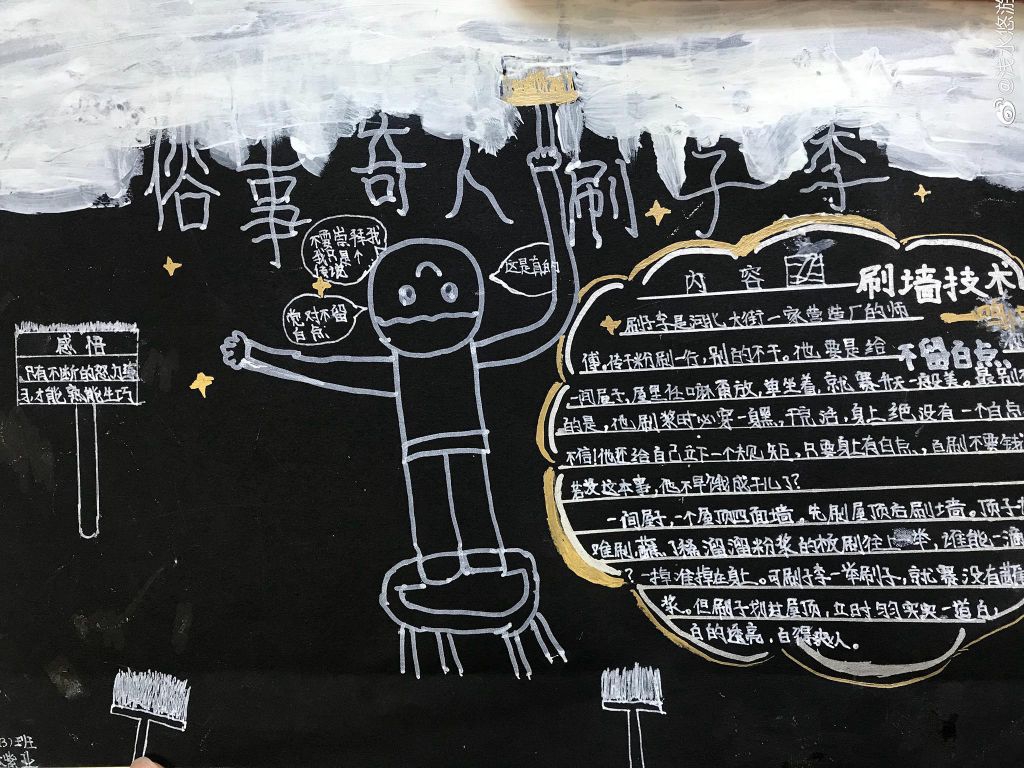 俗事奇人刷子李
不要崇拜我
我只是个
传说
这是真的
绝对不留
白点
感悟
只有不断的努力练
习,才能熟能生巧
内容
刷墙技术
不留白点
刷子李是河北大街一家营造厂的师
傅,专干粉刷一行,别的不干。他要是给
一间屋子,屋里任嘛甭放,单坐着,就赛升天一般美。最别
的是,他刷浆时必穿一身黑,干完活,身上绝没有一个白点
不信!他还给自己立下一个规矩,只要身上有白点,白刷不要钱
若没这本事,他不早饿成干儿了?
一间屋子,一个屋顶四面墙。先刷屋顶后刷墙。顶子
难刷,蘸了稀溜溜粉浆的板刷往 举,谁能一滴
?一掉准掉在身上。可刷子李一举刷子,就赛没有蘸
浆。但刷子划过屋顶,立时匀匀实实一道白,
白的透亮,白得爽人。
班
@浅水悠游